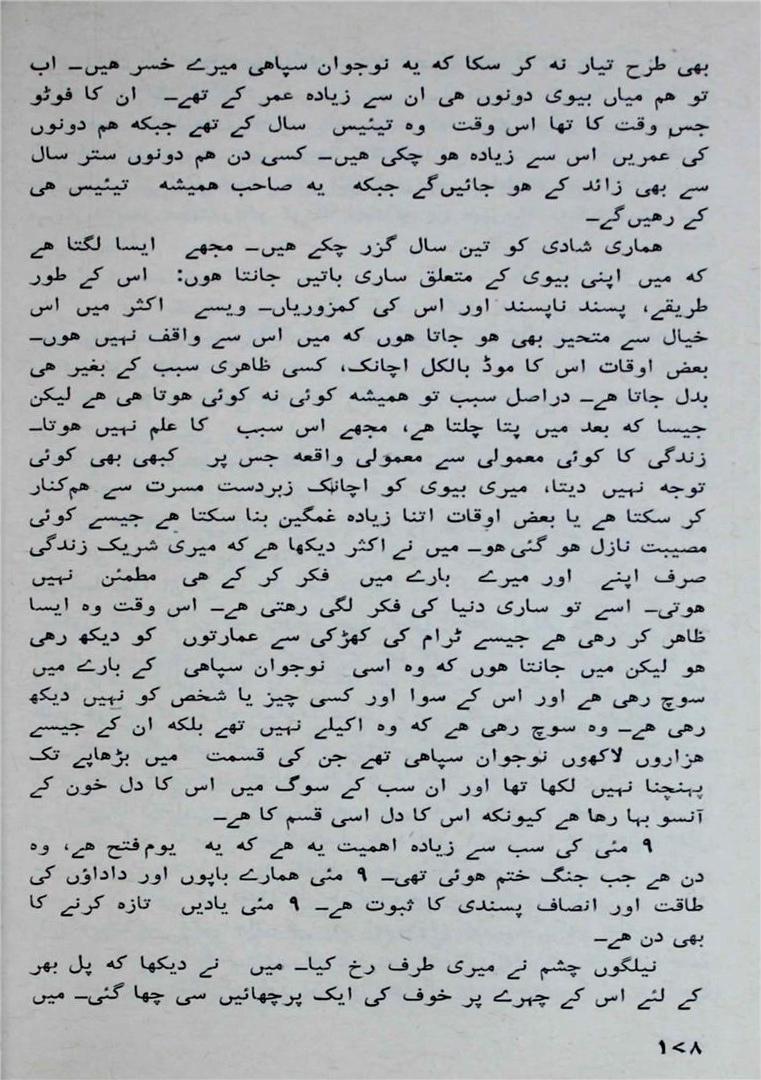 بھی طرح تیار نہ کر سکا کہ یہ نوجوان سپاھی میرے خسر ھیں۔ اب
تو ھم میاں بیوی دونوں ھی ان سے زیادہ عمر کے تھے۔ ان کا فوٹو
جس وقت کا تھا اس وقت وہ تیئیس سال کے تھے جبکہ ھم دونوں
کی عمریں اس سے زیادہ ھو چکی ھیں۔ کسی دن ھم دونوں ستر سال
سے بھی زائد کے ھو جائیں گے جبکہ یہ صاحب ھمیشہ تیئیس ھی
کے رھیں گے۔
ھماری شادی کو تین سال گزر چکے ھیں۔ مجھے ایسا لگتا ھے
کہ میں اپنی بیوی کے متعلق ساری باتیں جانتا ھوں: اس کے طور
طریقے، پسند ناپسند اور اس کی کمزوریاں۔ ویسے اکثر میں اس
خیال سے متحیر بھی ھو جاتا ھوں کہ میں اس سے واقف نہیں ھوں۔
بعض اوقات اس کا موڈ بالکل اچانک، کسی ظاھری سبب کے بغیر ھی
بدل جاتا ھے۔ دراصل سبب تو ھمیشہ کوئی نہ کوئی ھوتا ھی ھے لیکن
جیسا کہ بعد میں پتا چلتا ھے، مجھے اس سبب کا علم نہیں ھوتا۔
زندگی کا کوئی معمولی سے معمولی واقعہ جس پر کبھی بھی کوئی
توجہ نہیں دیتا، میری بیوی کو اچانک زبردست مسرت سے ھم کنار
کر سکتا ھے یا بعض اوقات اتنا زیادہ غمگین بنا سکتا ھے جیسے کوئی
مصیبت نازل ھو گئی ھو۔ میں نے اکثر دیکھا ھے کہ میری شریک زندگی
صرف اپنے اور میرے بارے میں فکر کر کے ھی مطمئن نہیں
ھوتی۔ اسے تو ساری دنیا کی فکر لگی رھتی ھے۔ اس وقت وہ ایسا
ظاھر کر رھی ھے جیسے ٹرام کی کھڑکی سے عمارتوں کو دیکھ رھی
ھو لیکن میں جانتا ھوں کہ وہ اسی نوجوان سپاھی کے بارے میں
سوچ رھی ھے اور اس کے سوا اور کسی چیز یا شخص کو نہیں دیکھ
رھی ھے۔ وہ سوچ رھی ھے کہ وہ اکیلے نہیں تھے بلکہ ان کے جیسے
ھزاروں لاکھوں نوجوان سپاھی تھے جن کی قسمت میں بڑھاپے تک
پہنچنا نہیں لکھا تھا اور ان سب کے سوگ میں اس کا دل خون کے
آنسو بہا رھا ھے کیونکہ اس کا دل اسی قسم کا ھے۔
۹ مئی کی سب سے زیادہ اھمیت یہ ھے کہ یہ یوم فتح ھے، وہ
دن ھے جب جنگ ختم ھوئی تھی۔ ۹ مئی ھمارے باپوں اور داداؤں کی
طاقت اور انصاف پسندی کا ثبوت ھے۔ ۹ مئی یادیں تازہ کرنے کا
بھی دن ھے۔
نیلگوں چشم نے میری طرف رخ کیا۔ میں نے دیکھا کہ پل بھر
کے لئے اس کے چہرے پر خوف کی ایک پرچھائیں سی چھا گئی۔ میں
۱۷۸